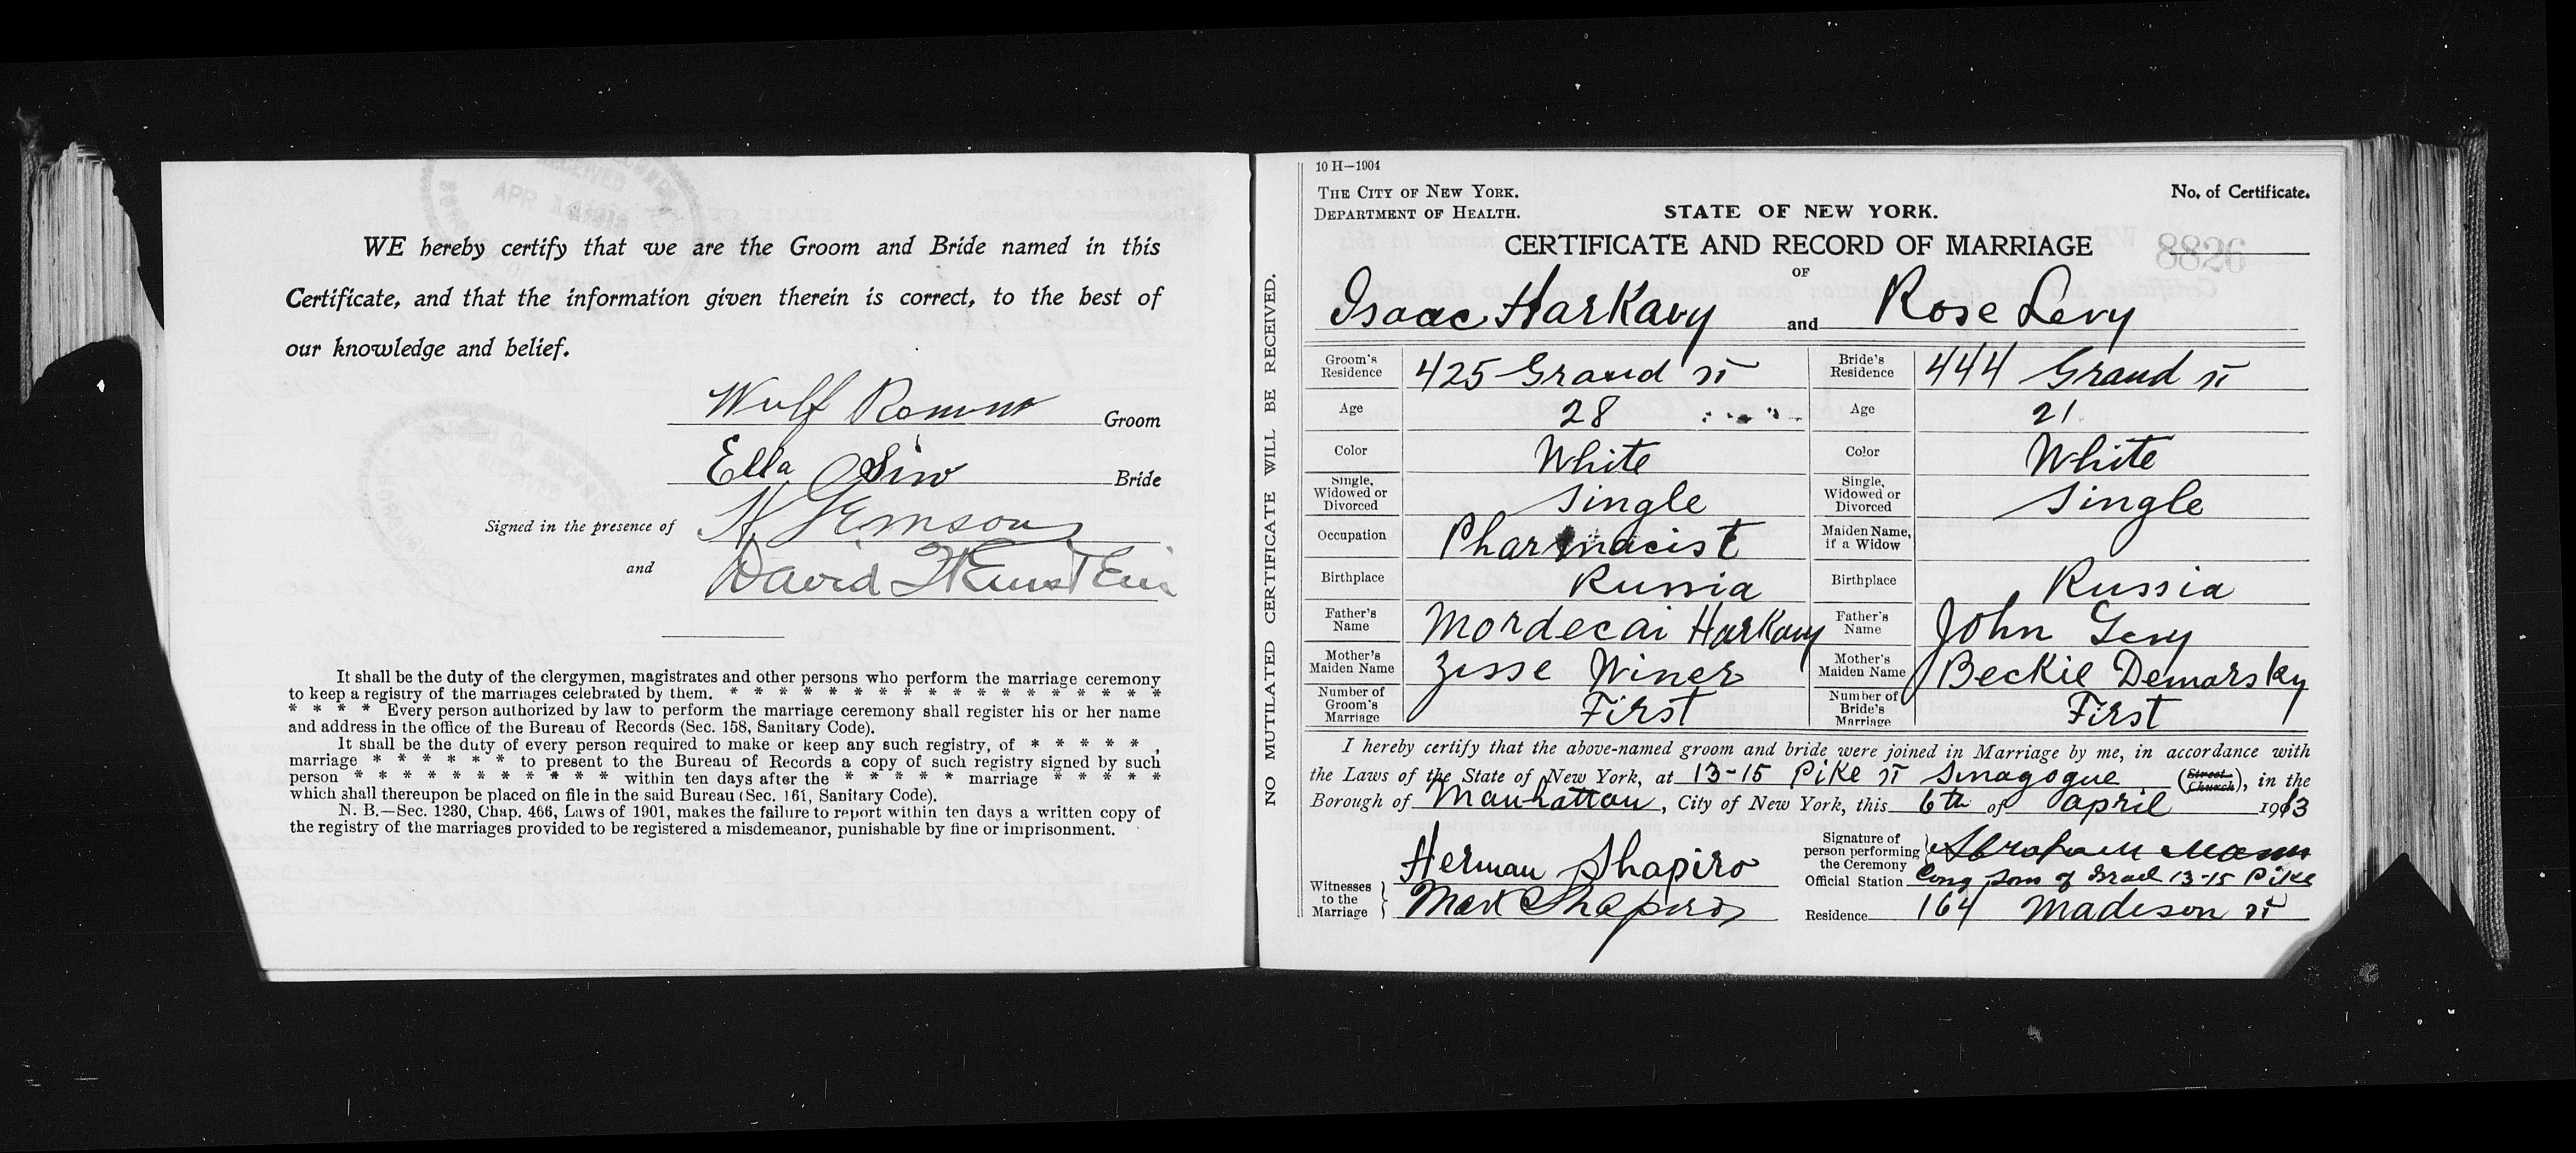 RECEIVED
APR 14 1913
WE hereby certify that we are the Groom and Bride named in this
Certificate, and that the information given therein is correct, to the best of
our knowledge and belief.
Wulf Groom
Ella Bride
Signed in the presence of
and David
It shall be the duty of the clergymen, magistrates and other persons who perform the marriage ceremony
to keep a registry of the marriages celebrated by them. * * * * * * * * * * * * * * * * *
* * * * Every person authorized by law to perform the marriage ceremony shall register his or her name
and address in the office of the Bureau of Records (Sec. 158, Sanitary Code).
It shall be the duty of every person required to make or keep any such registry, of * * * * * ,
marriage * * * * * * to present to the Bureau of Records a copy of such registry signed by such
person * * * * * * * * * * * within ten days after the * * * * * marriage * * * * *
which shall thereupon be placed on file in the said Bureau (Sec. 161, Sanitary Code).
N. B.—Sec. 1230, Chap. 466, Laws of 1901, makes the failure to report within ten days a written copy of
the registry of the marriages provided to be registered a misdemeanor, punishable by fine or imprisonment.
NO MUTILATED CERTIFICATE WILL BE RECEIVED.
10 H—1904
THE CITY OF NEW YORK. No. of Certificate.
DEPARTMENT OF HEALTH. STATE OF NEW YORK.
CERTIFICATE AND RECORD OF MARRIAGE 8826
OF
Isaac Harkavy and Rose Levy
Groom's Residence 425 Grand st Bride's Residence 444 Grand st
Age 28 Age 21
Color White Color White
Single, Widowed or Divorced Single Single, Widowed or Divorced Single
Occupation Pharmacist Maiden Name, if a Widow
Birthplace Russia Birthplace Russia
Father's Name Mordecai Harkavy Father's Name John Levy
Mother's Maiden Name Zisse Winer Mother's Maiden Name Beckie Demarsky
Number of Groom's Marriage First Number of Bride's Marriage First
I hereby certify that the above-named groom and bride were joined in Marriage by me, in accordance with
the Laws of the State of New York, at 13-15 Pike st Sinagogue (Street Church), in the
Borough of Manhattan, City of New York, this 6th of april 1913
Herman Shapiro Signature of person performing the Ceremony Abraham Mann
Witnesses to the Marriage Max Shapiro Official Station Cong Sons of Israel 13-15 Pike
Residence 164 Madison st